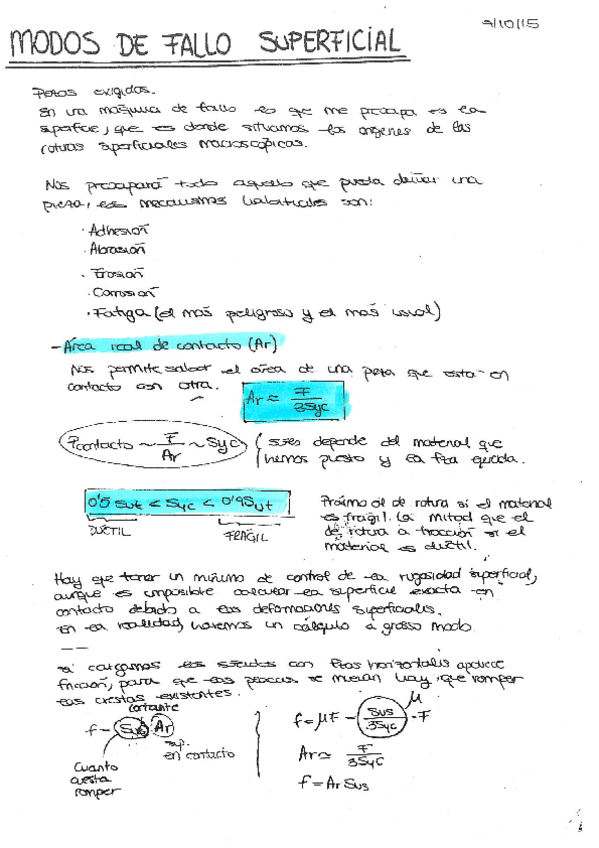 9/10/15
MODOS DE FALLO SUPERFICIAL
Piezas exigidas.
En una máquina de fallo lo que me preocupa es la
superficie, que es donde situamos los orígenes de las
roturas superficiales macroscópicas.
Nos preocupará todo aquello que pueda dañar una
pieza, los mecanismos habituales son:
· Adhesión
· Abrasión
· Erosión
· Corrosión
· Fatiga (el más peligroso y el más usual)
- Área real de contacto (Ar)
Nos permite saber el área de una pieza que está en
contacto con otra.
Ar ≈ F / 3Syc
Pcontacto ~ F / Ar ~ Syc
depende del material que
hemos puesto y la fza
0'5 Sut < Syc < 0'9 Sut
DÚCTIL
FRÁGIL
Próximo al de rotura si el material
es frágil. La mitad que el
de rotura a tracción si el
material es dúctil.
Hay que tener un mínimo de control de la rugosidad superficial,
aunque es imposible calcular la superficie exacta en
contacto debido a las deformaciones superficiales.
En la realidad, haremos un cálculo a grosso modo
--
Si cargamos los sólidos con fzas horizontales aparece
fricción, para que las piezas se muevan hay que romper
las crestas existentes.
cortante
f - Sus Ar
sup.
en contacto
Cuanto
cuesta
romper
μ
f = μF - Sus / 3Syc · F
Ar ≈ F / 3Syc
f = Ar Sus